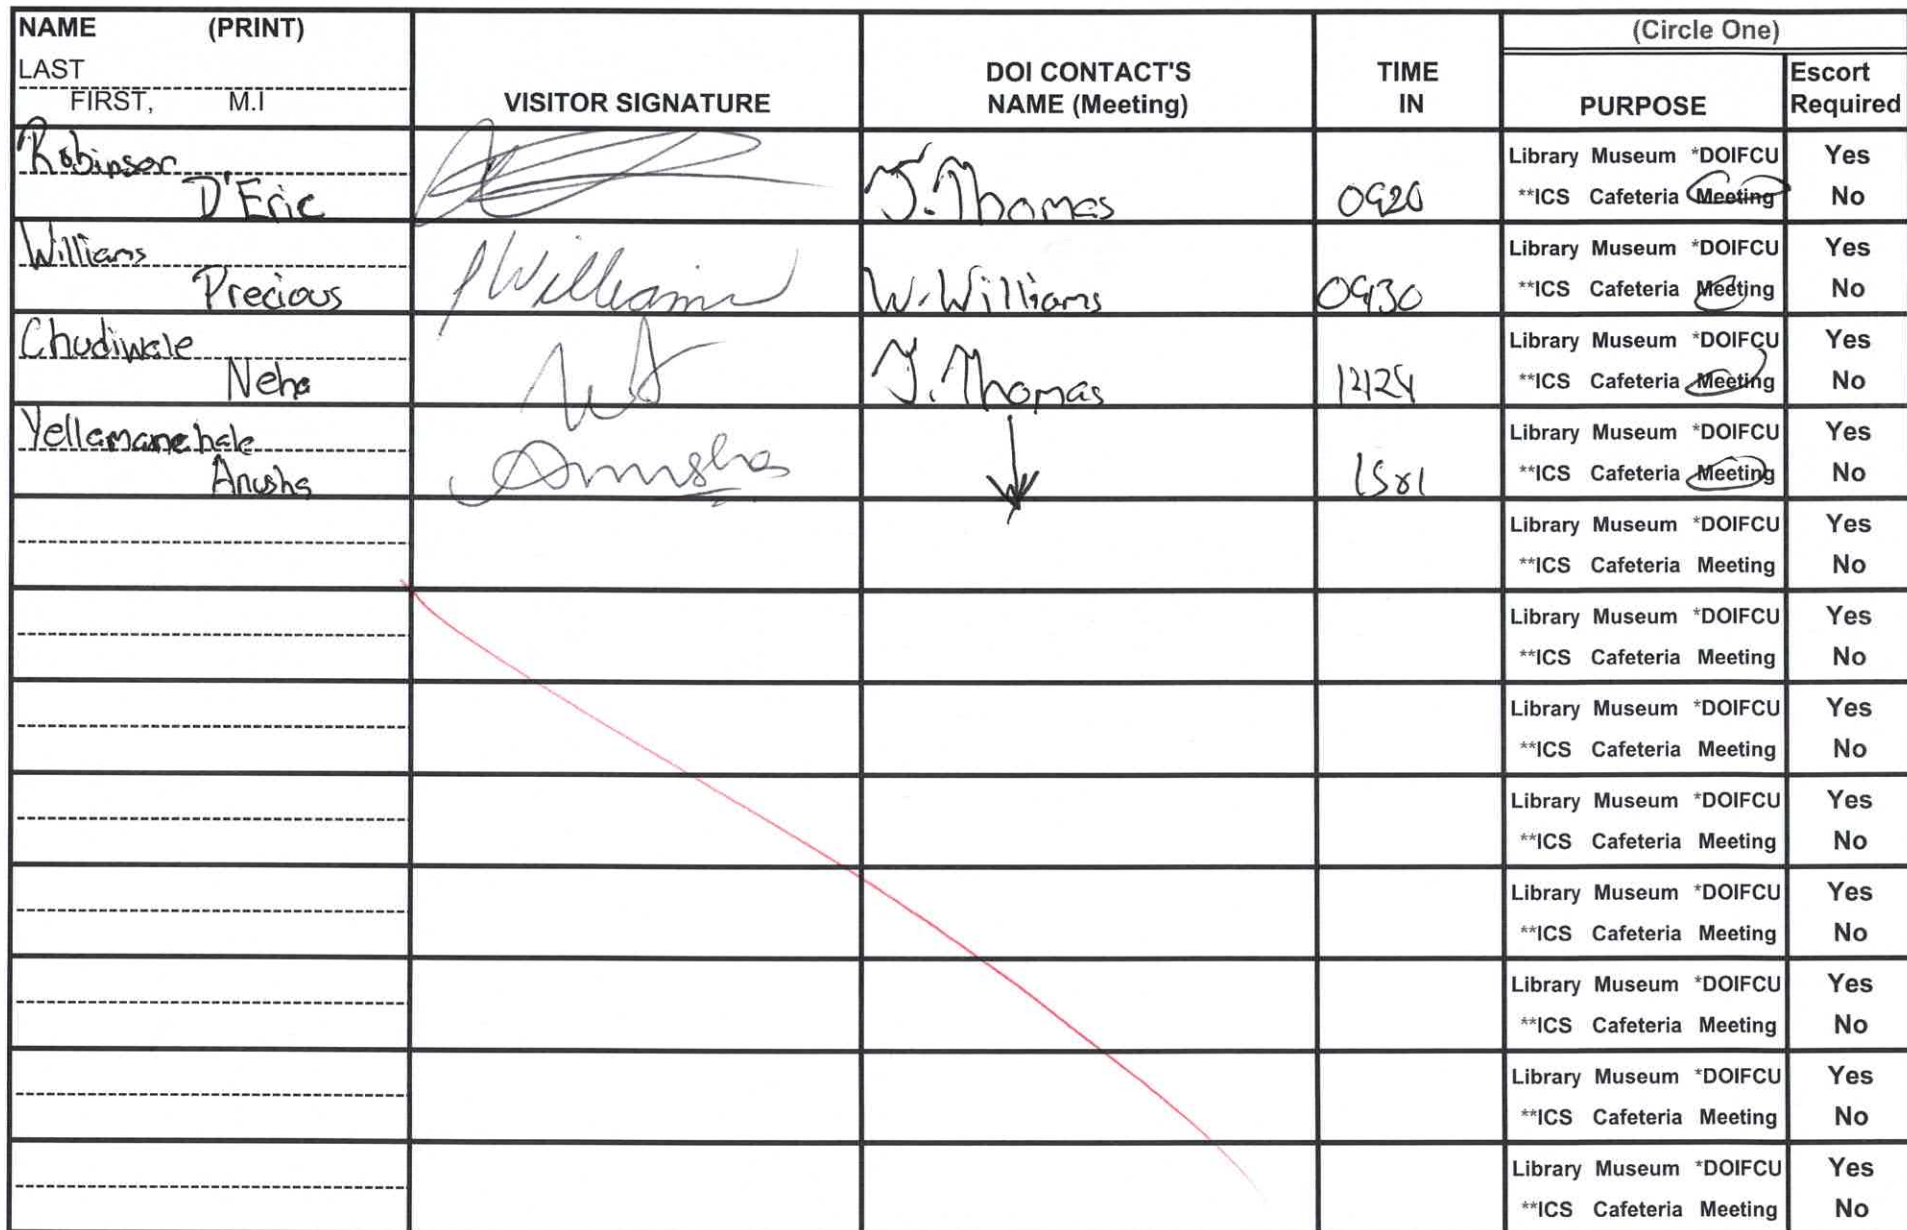 NAME (PRINT)
LAST
FIRST, M.I
VISITOR SIGNATURE
DOI CONTACT'S
NAME (Meeting)
TIME
IN
(Circle One)
PURPOSE
Escort
Required
Robinson
D'Eric
J. Thomas
0920
Library Museum *DOIFCU Yes
**ICS Cafeteria Meeting No
Williams
Precious
PWilliams
W. Williams
0930
Library Museum *DOIFCU Yes
**ICS Cafeteria Meeting No
Chudiwale
Neha
J. Thomas
Library Museum *DOIFCU Yes
**ICS Cafeteria Meeting No
Anusha
Anusha
Library Museum *DOIFCU Yes
**ICS Cafeteria Meeting No
Library Museum *DOIFCU Yes
**ICS Cafeteria Meeting No
Library Museum *DOIFCU Yes
**ICS Cafeteria Meeting No
Library Museum *DOIFCU Yes
**ICS Cafeteria Meeting No
Library Museum *DOIFCU Yes
**ICS Cafeteria Meeting No
Library Museum *DOIFCU Yes
**ICS Cafeteria Meeting No
Library Museum *DOIFCU Yes
**ICS Cafeteria Meeting No
Library Museum *DOIFCU Yes
**ICS Cafeteria Meeting No
Library Museum *DOIFCU Yes
**ICS Cafeteria Meeting No